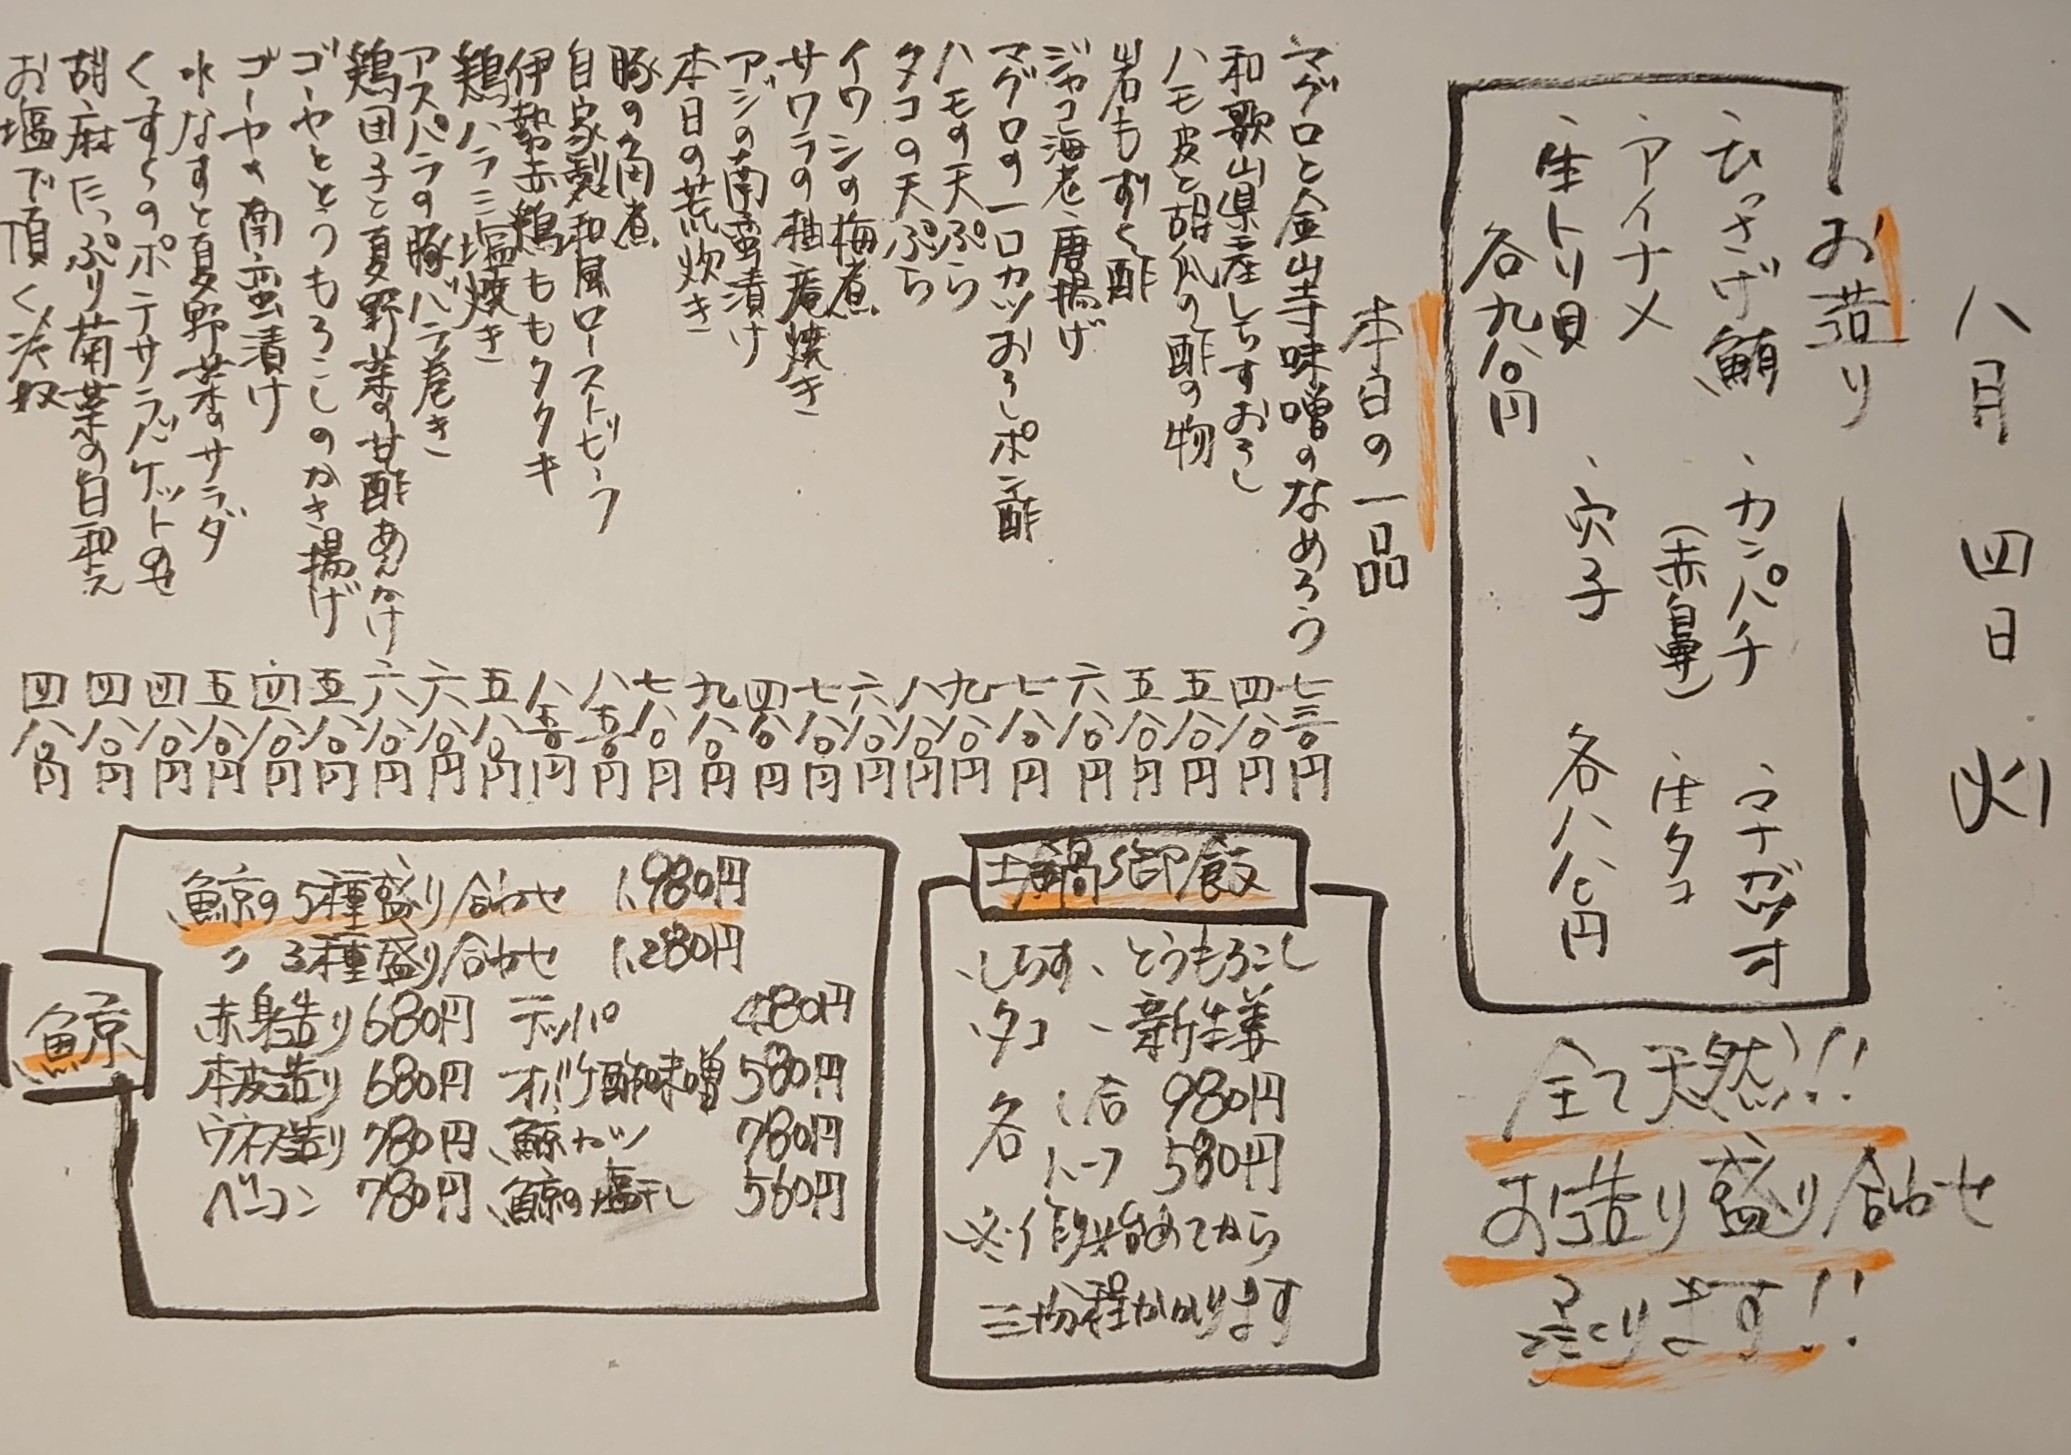 八月四日 火
お造り
、ひっさげ鮪
、アイナメ
、生トリ貝
各九八〇円
、カンパチ
(赤鼻)
、穴子
、マナガツオ
、生タコ
各八八〇円
全て天然!!
お造り盛り合わせ
承ります!!
本日の一品
マグロと金山寺味噌のなめろう 七三〇円
和歌山県産しらすおろし 四八〇円
ハモ皮と胡瓜の酢の物 五八〇円
岩もずく酢 五八〇円
ジャコ海老唐揚げ 六八〇円
マグロの一口カツおろしポン酢 七八〇円
ハモの天ぷら 九八〇円
タコの天ぷら 八八〇円
イワシの梅煮 六八〇円
サワラの柚庵焼き 七八〇円
アジの南蛮漬け 四八〇円
本日の荒炊き 九八〇円
豚の角煮 七八〇円
自家製和風ローストビーフ 八五〇円
伊勢赤鶏ももタタキ 八五〇円
鶏ハラミ塩焼き 五八〇円
アスパラの豚バラ巻き 六八〇円
鶏団子と夏野菜の甘酢あんかけ 六八〇円
ゴーヤととうもろこしのかき揚げ 五八〇円
ゴーヤの南蛮漬け 四八〇円
水なすと夏野菜のサラダ 五八〇円
くずらのポテサラバケットのせ 四八〇円
胡麻たっぷり菊菜の白和え 四八〇円
お塩で頂く冷奴 四八〇円
土鍋御飯
、しらす、とうもろこし
、タコ、新生姜
各 1合 980円
ハーフ 580円
※作り始めてから
三十分程かかります
鯨
鯨の5種盛り合わせ 1,980円
〃 3種盛り合わせ 1,280円
赤身造り 680円 テッパ 480円
本皮造り 680円 オバケ酢味噌 580円
ウネス造り 780円 鯨カツ 780円
ベーコン 780円 鯨の塩干し 560円